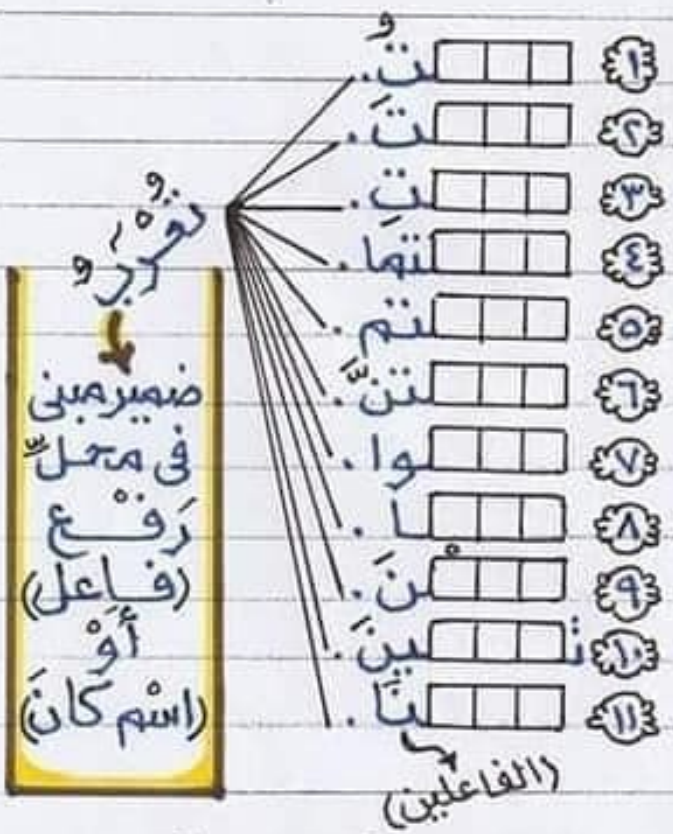 ١ ـتُ .
٢ ـتَ .
٣ ـتِ .
٤ ـتما .
٥ ـتم .
٦ ـتنَّ .
٧ ـوا .
٨ ـا .
٩ ـْنَ .
١٠ تـ ـينَ .
١١ ـنَا .
(الفاعلين)
تُعْرَبُ
ضمير مبنى
فى محلِّ
رَفْـع
(فـاعل)
أَوْ
(اسْم كَانَ)